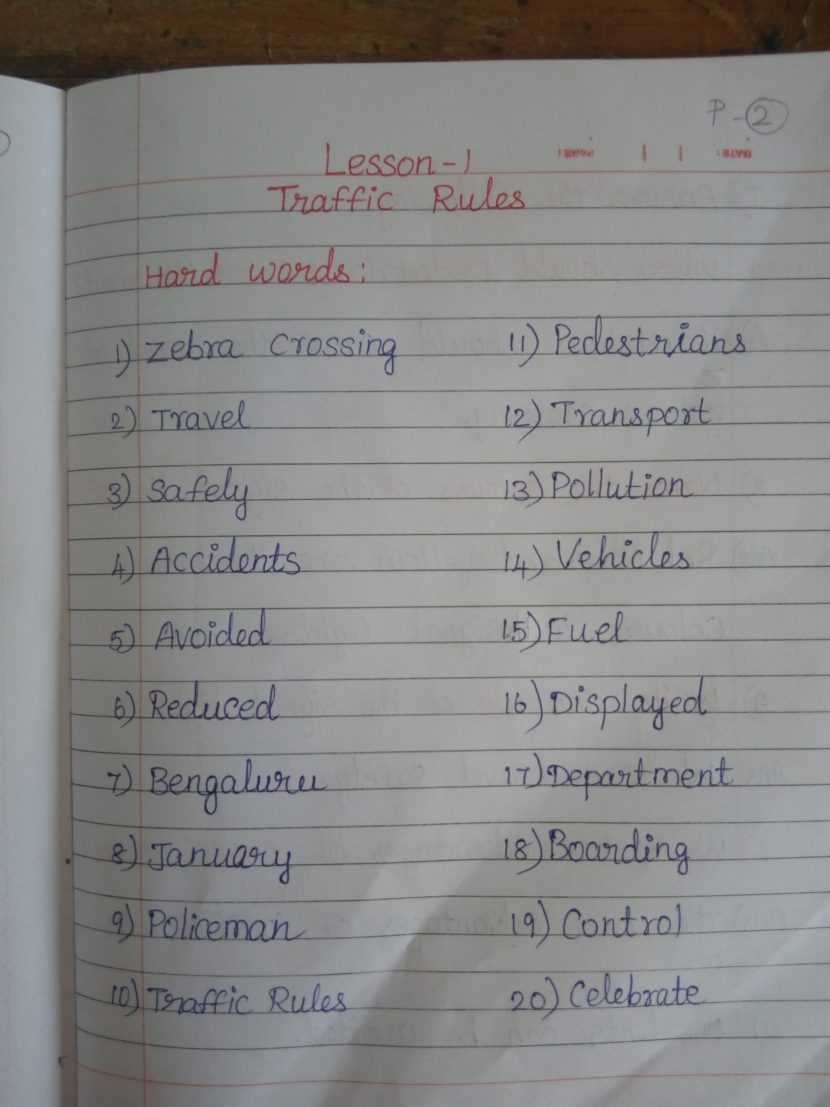 P-2
Lesson-1
Traffic Rules
Hard words:
1) Zebra Crossing
2) Travel
3) Safely
4) Accidents
5) Avoided
6) Reduced
7) Bengaluru
8) January
9) Policeman
10) Traffic Rules
11) Pedestrians
12) Transport
13) Pollution
14) Vehicles
15) Fuel
16) Displayed
17) Department
18) Boarding
19) Control
20) Celebrate